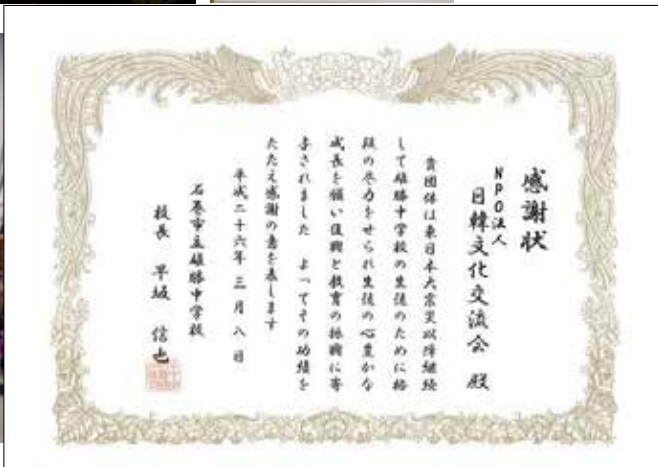 感謝状
NPO法人
日韓文化交流会 殿
貴団体は東日本大震災以降継続
して雄勝中学校の生徒のために格
段の尽力をせられ生徒の心豊かな
成長を願い復興と教育の振興に寄
与されました よってその功績を
たたえ感謝の意を表します
平成二十六年 三月 八日
石巻市立雄勝中学校
校長 早坂 信也